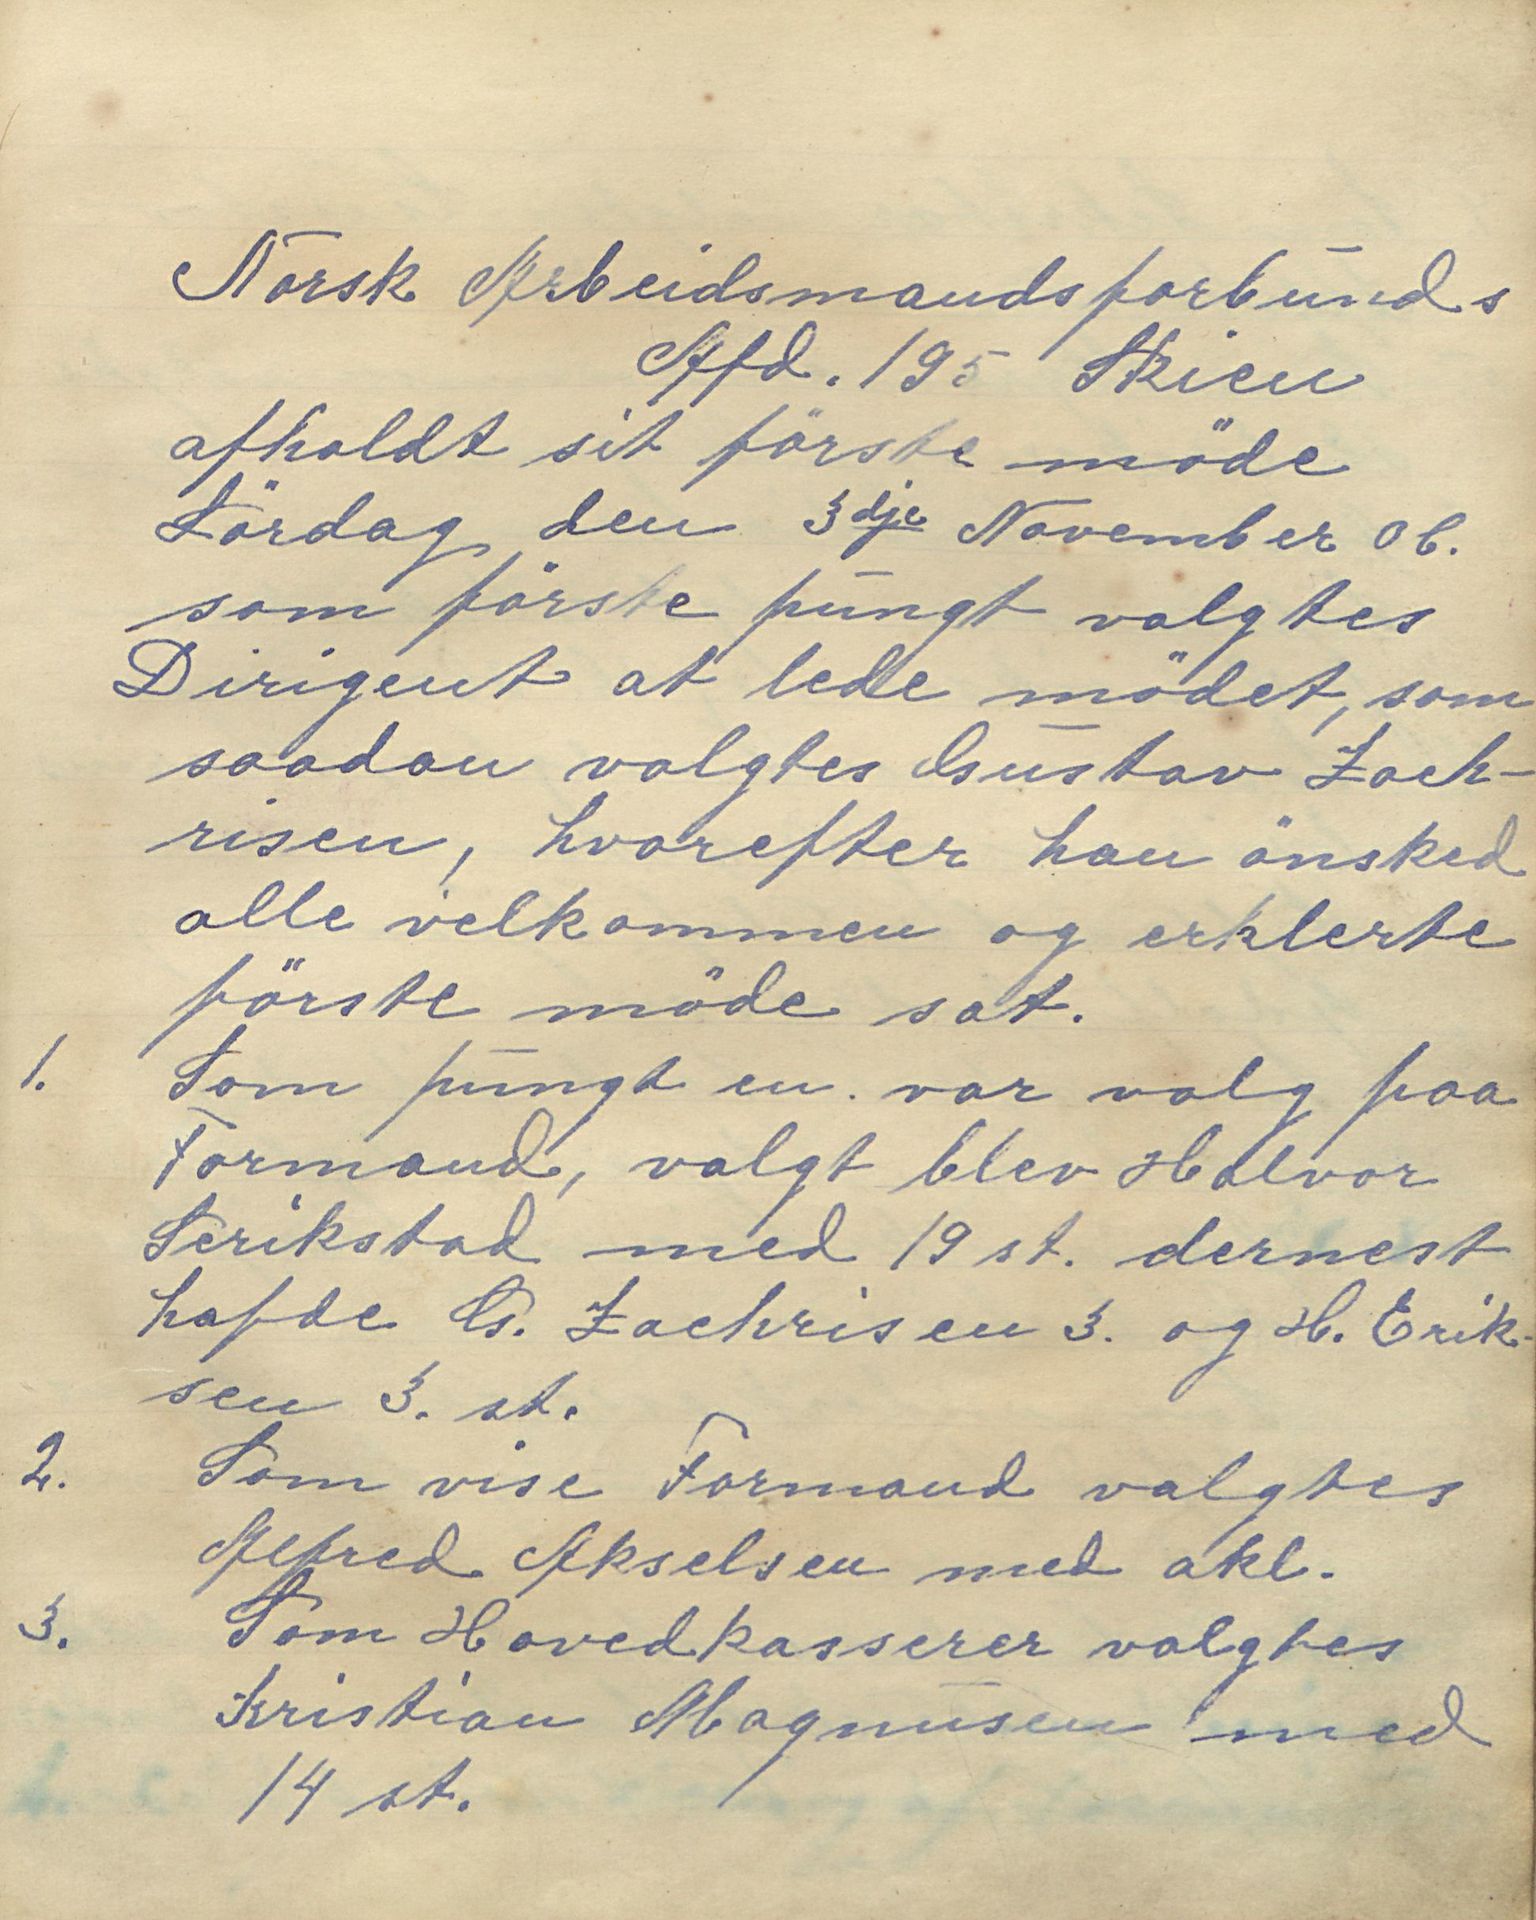 Norsk Arbeidsmandsforbunds
Afd. 195 Skien
afholdt sit förste möde
Lördag den 3dje November 06.
som förste pungt valgtes
Dirigent at lede mödet, som
saadan valgtes Gustav Zach-
risen, hvorefter han önsked
alle velkommen og erklerte
förste möde sat.
1. Som pungt en. var valg paa
Formand, valgt blev Halvor
Serikstad med 19 st. dernest
hafde G. Zachrisen 3. og H. Erik-
sen 3. st.
2. Som vise Formand valgtes
Alfred Akselsen med akl.
3. Som Hovedkasserer valgtes
Kristian Magnusen med
14 st.